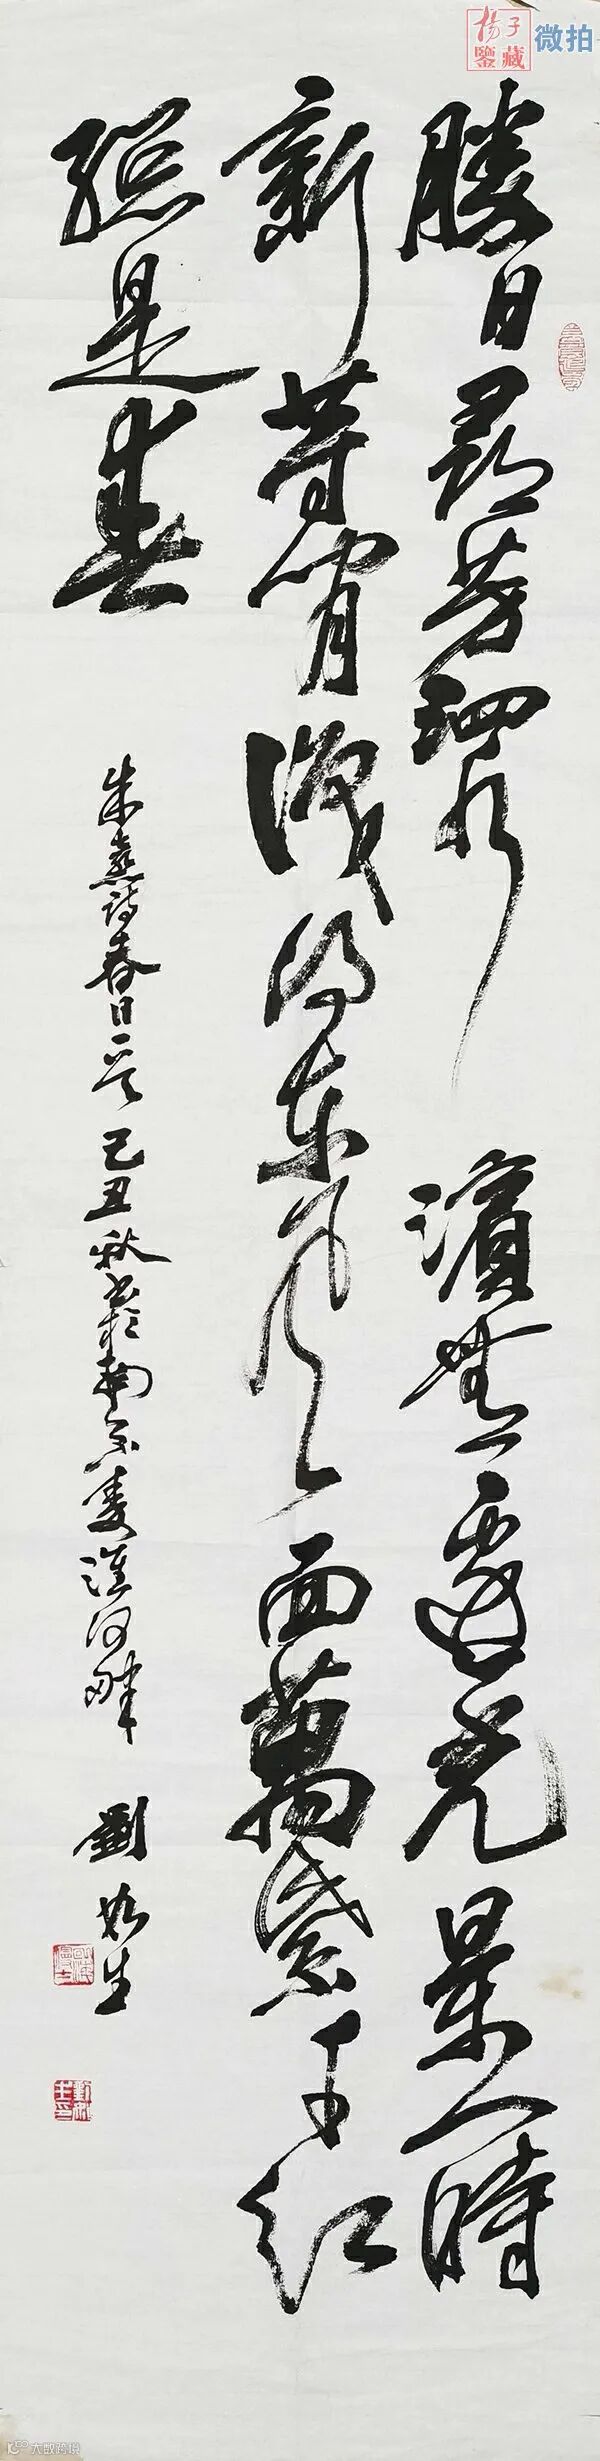 揚子
鑒藏 微拍
勝日尋芳泗水濱無邊光景一時
新等閒識得東風面萬紫千紅
總是春
朱熹詩春日一首 己丑秋書於南京秦淮河畔 劉 生
大数跨境